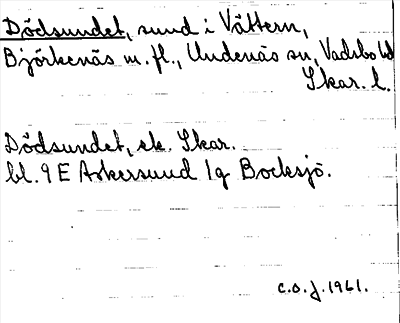 Dödsundet, sund i Vättern,
Björkenäs m. fl., Undenäs sn, Vadsbo hd
Skar. l.
Dödsundet, ek. Skar.
bl. 9 E Askersund 1g Bocksjö.
c.o.j. 1961.